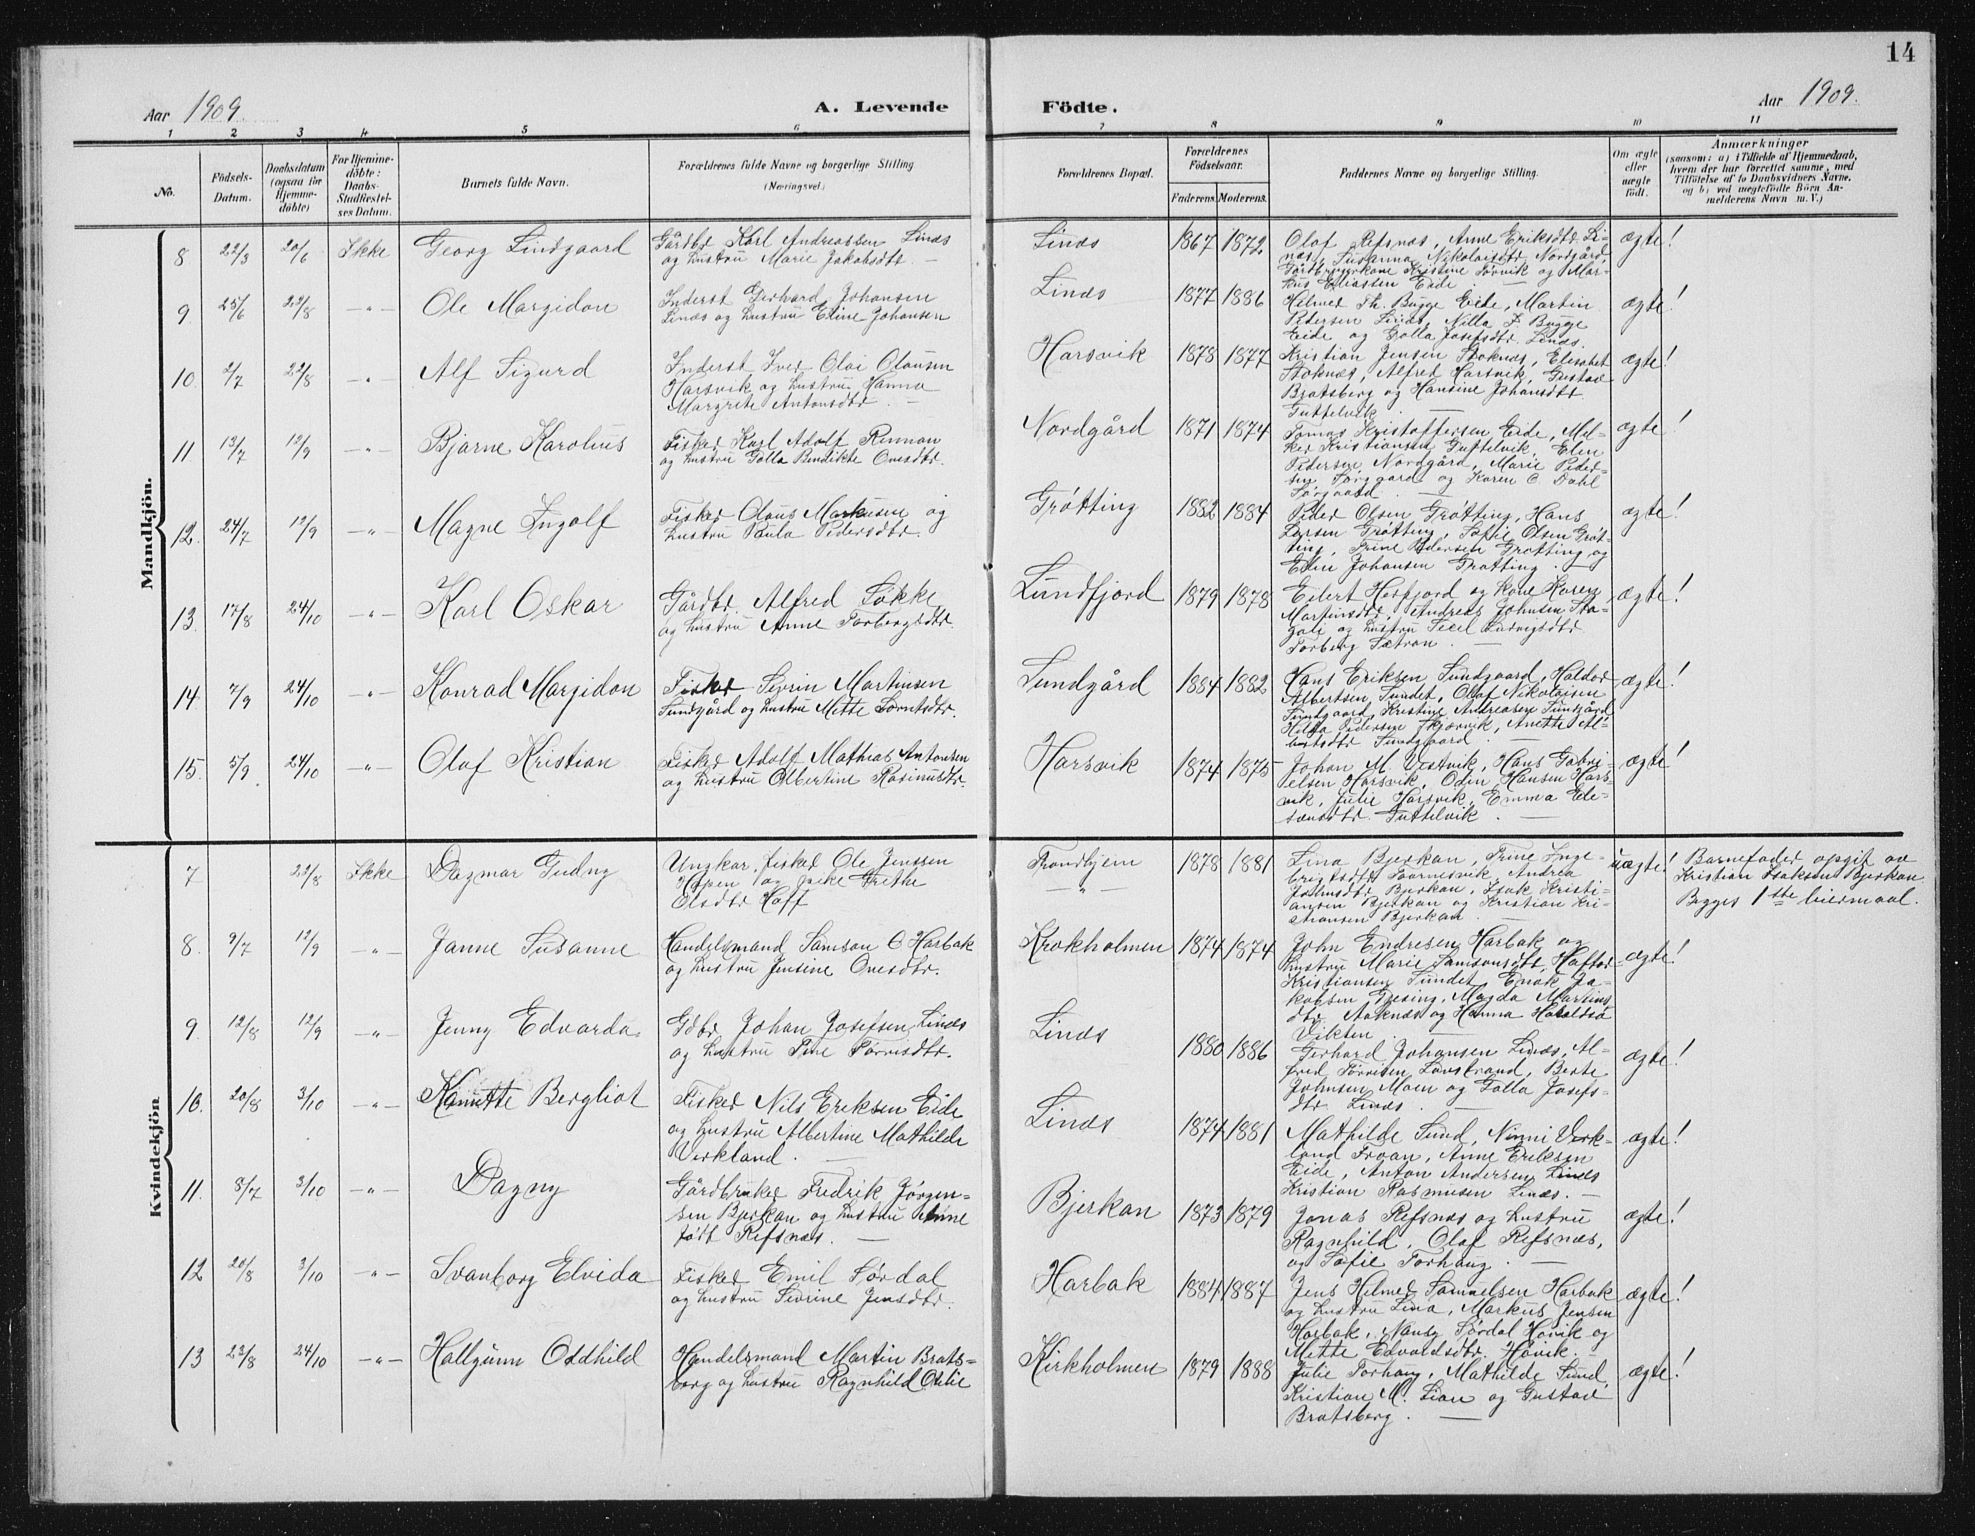 14
Aar 1909.
A. Levende Födte.
Aar 1909.
1 2 3 4 5 6 7 8 9 10 11
No.
Födsels-
Datum.
Daabsdatum
(ogsaa for
Hjemme-
döbte)
For Hjemme-
döbte:
Daabs-
Stadfestel-
ses Datum.
Barnets fulde Navn.
Forældrenes fulde Navne og borgerlige Stilling
(Næringsvei)
Forældrenes Bopæl.
Forældrenes
Födselsaar.
Faderens. Moderens.
Faddernes Navne og borgerlige Stilling.
Om ægte
eller
uægte
födt.
Anmærkninger
(saasom: a) i Tilfælde af Hjemmedaab,
hvem der har forrettet samme, med
Tilföielse af to Daabsvidners Navne,
og b) ved uægtefödte Börn An-
melderens Navn m. V.)
Mandkjön.
8 22/3 20/6 Ikke Georg Lindgaard
Gårdbr Karl Andreassen Linæs
og hustru Marie Jakobsdtr. —
Linæs 1867 1872
Olaf Refsnæs, Anne Eriksdtr Li-
næs, Susanna Nikolaisdtr Nordgård,
Gårdbrugerkone Kristine Törvik og Mar-
kus Eliassen Eide.
ægte!
9 25/6 22/8 —"— Ole Margidon
Inderst Gerhard Johansen
Linæs og hustru Eline Johansen
Linæs 1877 1886
Helmer Th. Bugge Eide, Martin
Pedersen Linæs, Nilla J. Bugge
Eide og Golla Josefsdtr Linæs.
ægte!
10 2/7 22/8 —"— Alf Sigurd
Inderst Iver Olai Olausen
Harsvik og hustru Hanna
Margrete Antonsdtr. —
Harsvik 1878 1877
Kristian Jensen Stoknæs, Elesabet
Stoknæs, Alfred Harsvik, Gustav
Bratsberg og Hansine Johansdtr
Tuttelvik.
ægte!
11 12/7 12/9 —"— Bjarne Karolius
Fisker Karl Adolf Rennan
og hustru Golla Bendikte Ovesdtr.
Nordgård 1871 1874
Tomas Kristoffersen Eide, Mel-
ker Kristiansen Tuttelvik, Elen
Pedersen Nordgård, Marie Peder-
sen Sørgaard og Karen O Dahl
Sørgaard
ægte!
12. 24/7 12/9 —"— Magne Ingolf
Fisker Olaus Markusen og
hustru Paula Pedersdtr.
Grøtting 1882 1884
Peder Olsen Grøtting, Hans
Larsen Grøtting, Sofie Olsen Grøt-
ting, Trine Pedersen Grøtting og
Elen Johansen Grøtting.
ægte!
13. 17/8 24/10 —"— Karl Oskar
Gårdbr. Alfred Løkke
og hustru Anne Torbergsdtr.
Lundfjord 1879 1878
Edert Hopfjord og kone Karen
Martinsdtr, Andreas Johnsen
og hustru Ludvigsdtr
Torberg Sætran.
ægte!
14. 7/9 24/10 —"— Konrad Margidon
Fisker Sevrin Martinsen
Sundgård og hustru Mette Tørrisdtr.
Sundgård 1884 1882
Hans Eriksen Sundgaard, Haldor
Albertsen Sundet, Olaf Nikolaisen
Sundgaard, Kristine Andreasen Sundgård
Hilda Pedersen Skjærvik, Anette Al-
bertsdtr Sundgaard.
ægte!
15. 5/9. 24/10 —"— Olaf Kristian
Fisker Adolf Mathias Antonsen
og hustru Albertine Rasmusdtr.
Harsvik 1874 1875
Johan M Vestvik, Hans Gabri-
elsen Harsvik, Odin Hansen Hars-
vik, Julie Harsvik, Emma Ede-
sensdtr Tuttelvik. —
ægte!
Kvindekjön
7 22/8 Ikke Dagmar Gudny
Ungkar, fisker Ole Jenssen
Hopen og pike Grethe
Olsdtr Hoff
Trondhjem
—"—
1878 1881
Lina Bjerkan, Trine Inge-
brigtsdtr Tørresvik, Andrea
Johnsdtr Bjerkan, Isak Kristi-
ansen Bjerkan og Kristian Kri-
stiansen Bjerkan.
uægte!
Barnefader opgit av
Kristian Isaksen Bjerkan.
Begges 1ste leiermaal.
8. 9/7 12/9 —"— Janne Susanne
Handelsmand Samson O Harbak
og hustru Jensine Ovesdtr.
Krokholmen 1874 1874
John Endresen Harbak og
hustru Marie Samsonsdtr, Haftor
Kristiansen Sundet, Enok Ja-
kobsen Gjesing, Magda Martins-
dtr Aaknæs og Hanna
Vikten.
ægte!
9. 12/8 12/9 —"— Jenny Edvarda.
Gdbr Johan Josefsen Linæs
og hustru Tine Tørrisdtr.
Linæs 1880 1886
Gerhard Johansen Linæs, Al-
fred Tørrisen Lovstrand, Berte
Johnsen Moen og Golla Josefs-
dtr Linæs.
ægte!
10. 20/8 3/10 —"— Kanutte Bergliot
Fisker Nils Eriksen Eide
og hustru Albertine Mathilde
Verkland. —
Linæs 1874 1881
Mathilde Sund, Ninni Verk-
land Froan, Anne Eriksen
Eide, Anton Andersen Linæs
Kristian Rasmusen Linæs. —
ægte!
11. 8/7 3/10 —"— Dagny
Gårdbruker Fredrik Jörgen-
sen Bjerkan og hustru Anne
født Refsnæs. —
Bjerkan 1873 1879
Jonas Refsnæs og hustru
Ragnhild, Olaf Refsnæs,
og Sofie Torhaug. —
ægte!
12 20/8 3/10 —"— Svanborg Elvida
Fisker Emil Sørdal
og hustru Sevrine Jensdtr.
Harbak 1884 1887
Jens Helmer Samuelsen Harbak
og hustru Lina, Markus Jensen
Harbak, Nansy Sørdal Høvik og
Mette Edvardsdtr. Høvik.
ægte!
13 22/8 24/10 —"— Hallgunn Oddhild
Handelsmand Martin Brats-
berg og hustru Ragnhild Otilie
Kirkholmen 1879 1888
Julie Torhaug, Mathilde Sund,
Kristian M. Lian og Gustav
Bratsberg. —
ægte!